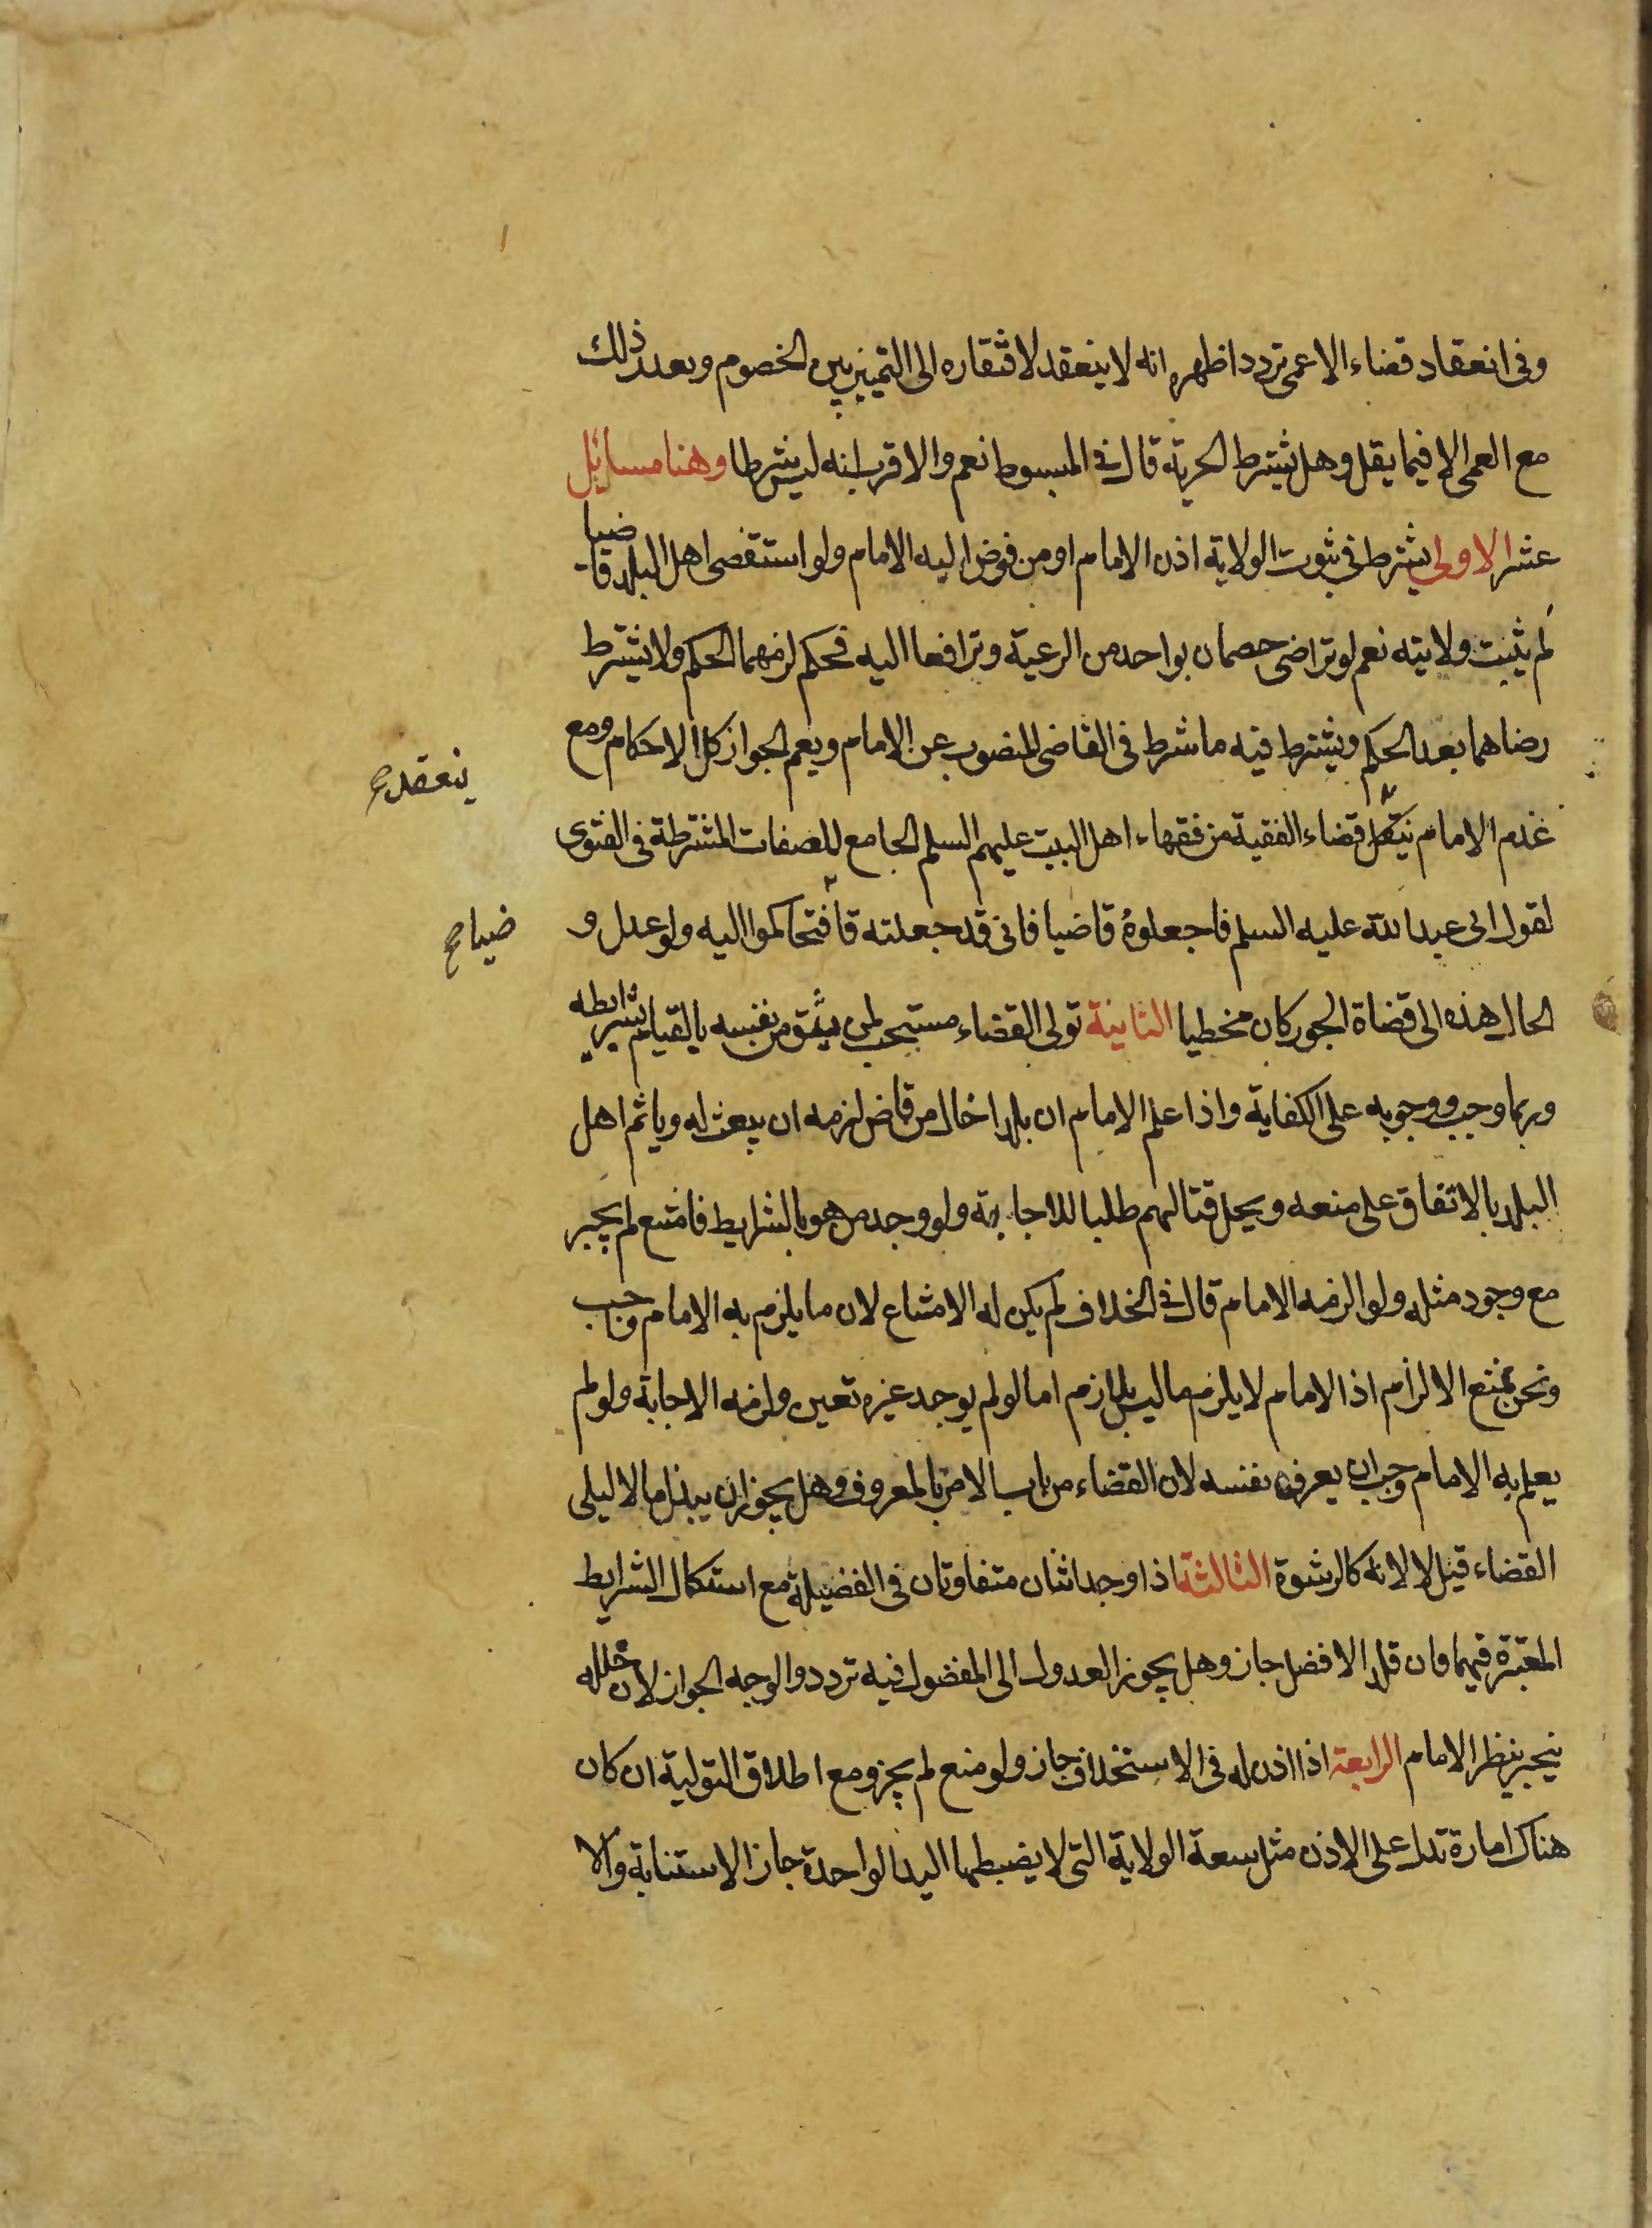 وفى انعقاد قضاء الاعمى تردد اظهره انه لا ينعقد لافتقاره الى التميز بين الخصوم وبعد ذلك
مع العمى الا فيما يقل وهل يشترط الحرية قال فى المبسوط نعم والاقرب انه ليس شرطا وهنا مسائل
عشر الاولى يشترط فى ثبوت الولاية اذن الامام او من فوض اليه الامام ولو استقضى اهل البلد قاضيا
لم يثبت ولايته نعم لو تراضى خصمان بواحد من الرعية وترافعا اليه فحكم لزمهما الحكم ولا يشترط
رضاهما بعد الحكم ويشترط فيه ما شرط فى القاضى المنصوب عن الامام ويعم الجواز كل الاحكام ومع
عدم الامام قضاء الفقيه من فقهاء اهل البيت عليهم السلم الجامع للصفات المشترطة فى الفتوى
ينعقد صح
لقول ابى عبد الله عليه السلم فاجعلوه قاضيا فانى قد جعلته قا فتحاكموا اليه ولو عدل و
ضيا صح
الحال هذه الى قضاة الجور كان مخطيا الثانية تولى القضاء مستحب لمن يثق من نفسه بالقيام بشرايطه
وربما وجب ووجوبه على الكفاية واذا علم الامام ان بلدا خال من قاض لزمه ان يبعث له وياثم اهل
البلد بالاتفاق على منعه ويحل قتالهم طلبا للاجابة ولو وجد من هو بالشرايط فامتنع لم يجبر
مع وجود مثله ولو الزمه الامام قال فى الخلاف لم يكن له الامتناع لان ما يلزم به الامام وجب
ونحن نمنع الالزام اذ الامام لا يلزم بما ليس بلازم اما لو لم يوجد غيره تعين ولزمه الاجابة ولو لم
يعلم به الامام وجب ان يعرف نفسه لان القضاء من باب الامر بالمعروف وهل يجوز ان يبذل مالا ليلى
القضاء قيل لا لانه كالرشوة الثالثة اذا وجد اثنان متفاوتان فى الفضيلة مع استكمال الشرايط
المعتبرة فيهما فان قلد الافضل جاز وهل يجوز العدول الى المفضول فيه تردد والوجه الجواز لان خلله
ينجبر بنظر الامام الرابعة اذا اذن له فى الاستخلاف جاز ولو منع لم يجز ومع اطلاق التولية ان كان
هناك امارة تدل على الاذن مثل سعة الولاية التى لا يضبطها اليد الواحدة جاز الاستنابة والا